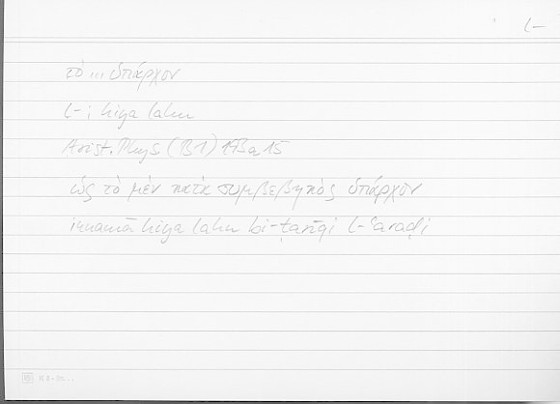 l-
τὸ ... ὑπάρχον
l-; hiya lahu
Arist. Phys (B1) 193a15
ὡς τὸ μὲν κατὰ συμβεβηκὸς ὑπάρχον
innamā hiya lahu bi-ṭarīqi l-ʿaraḍi